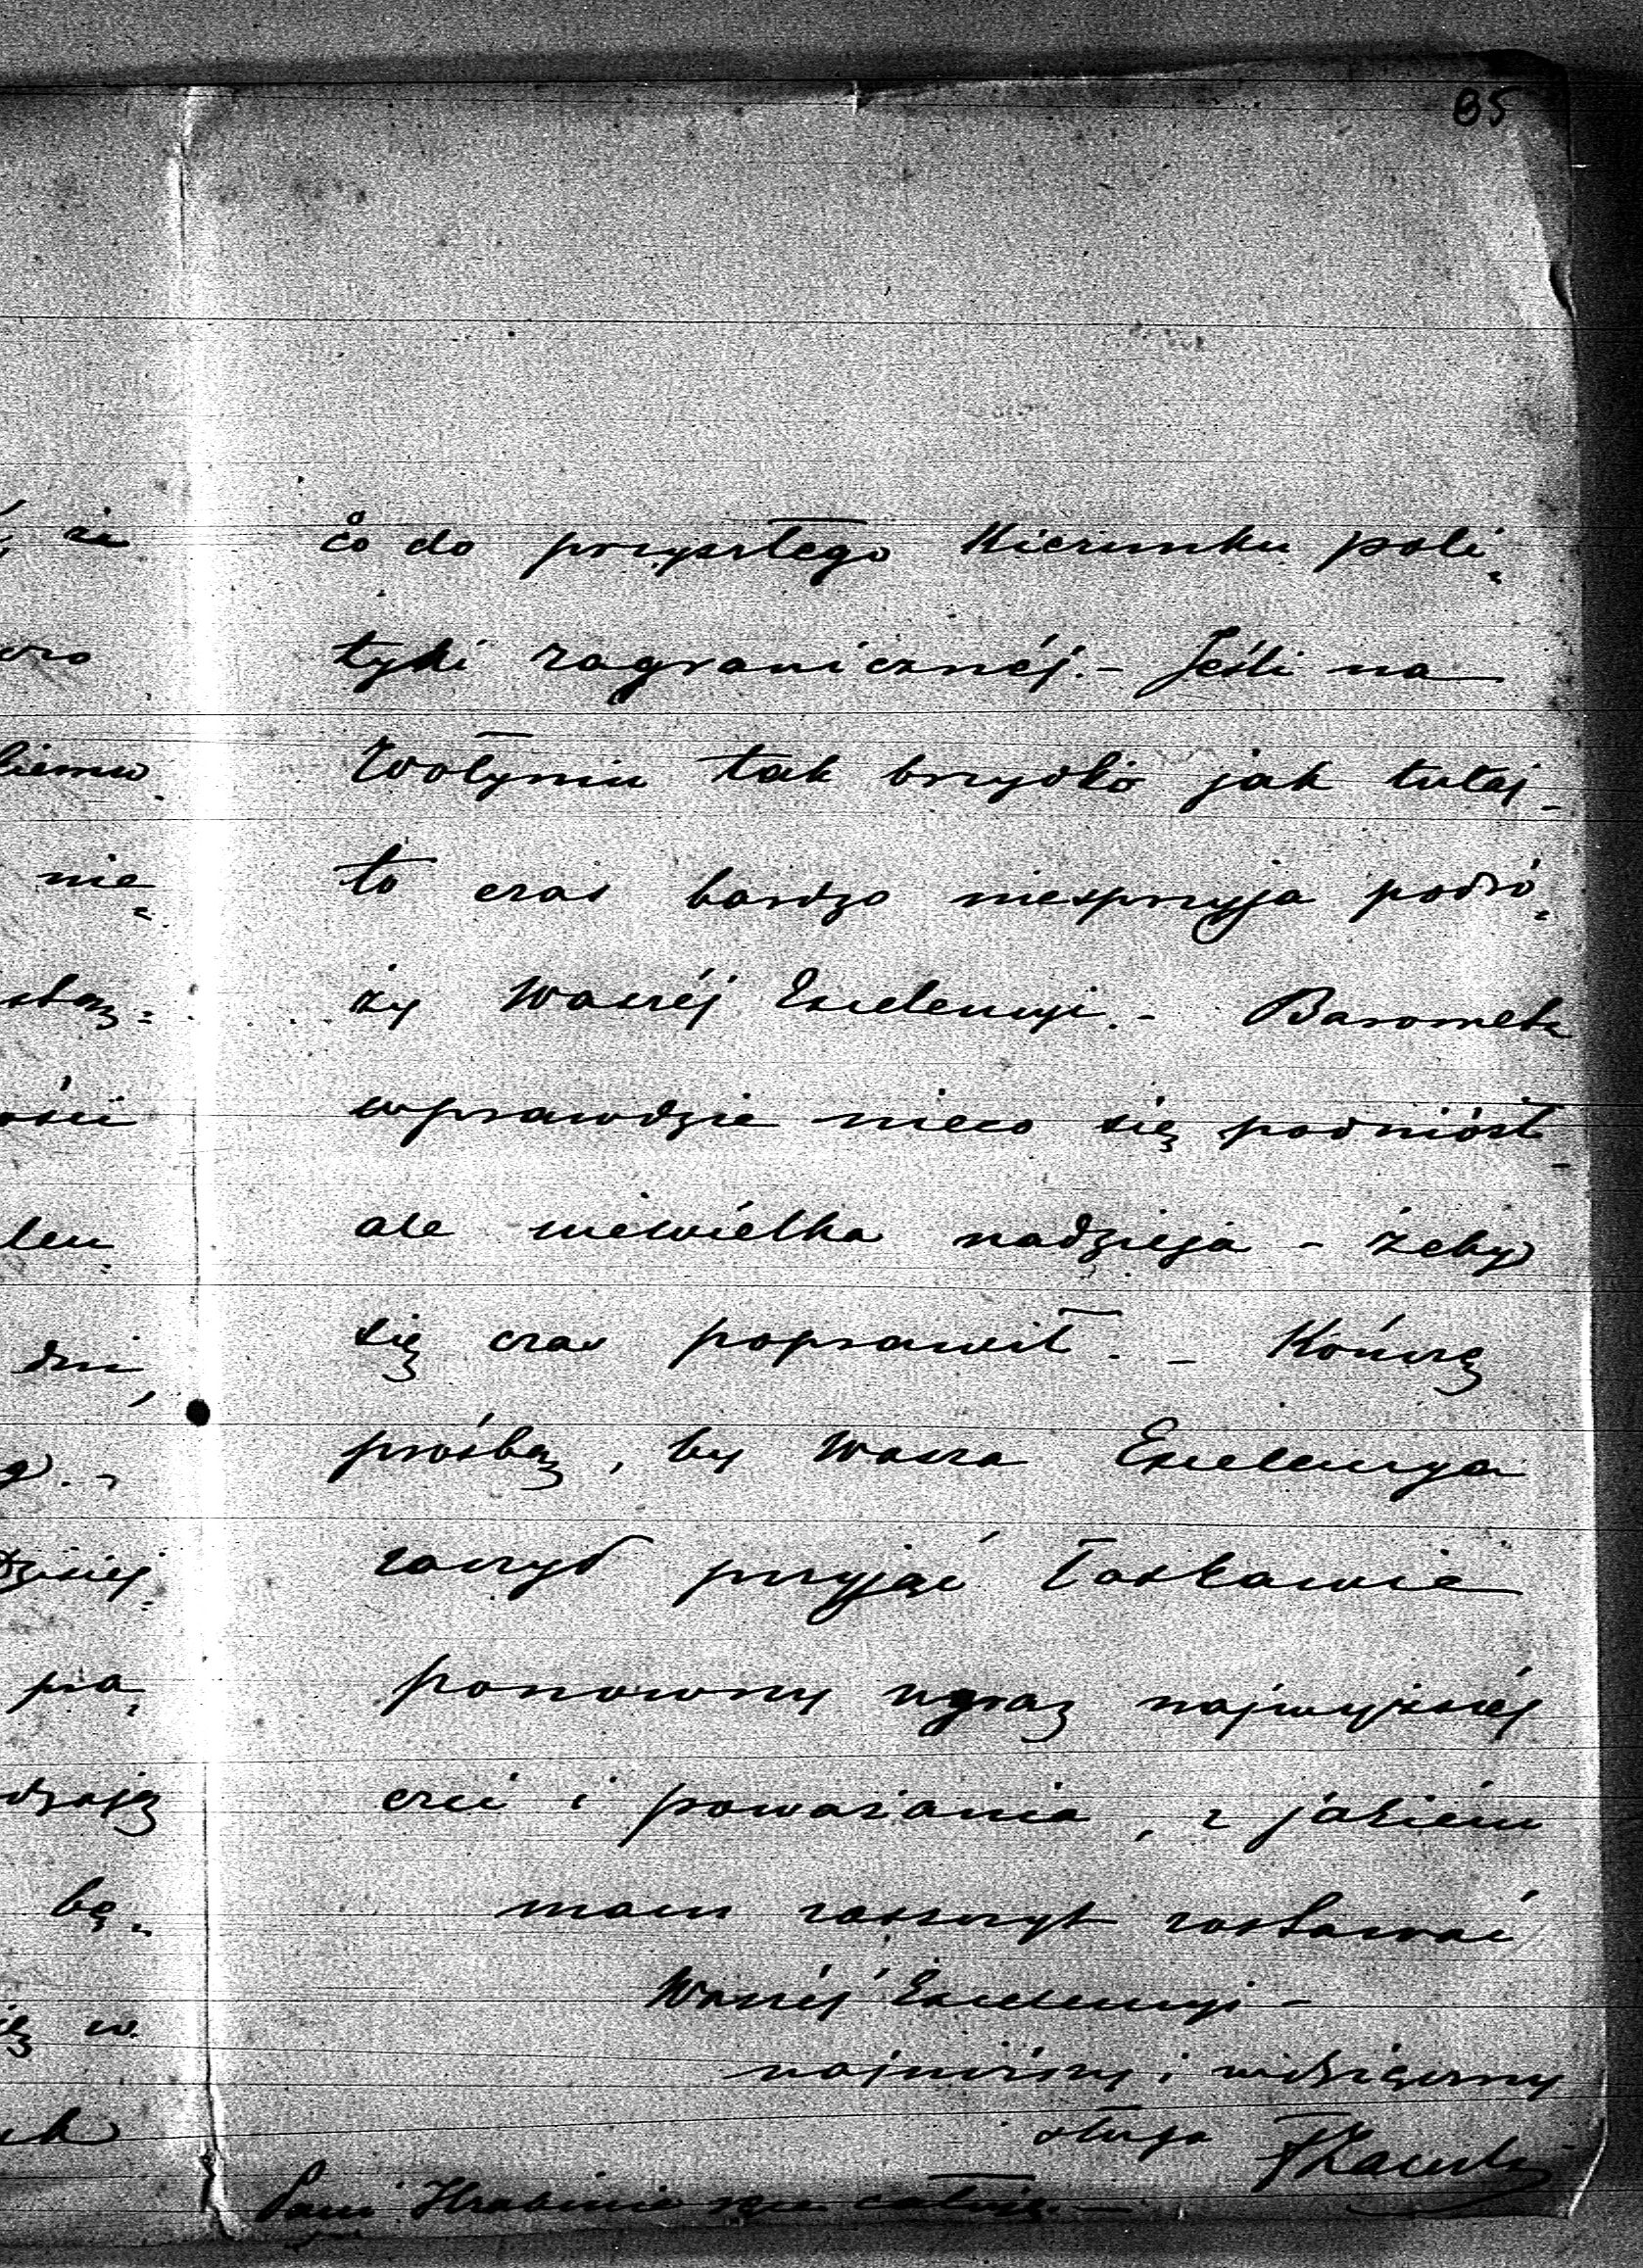 85
co do przyszłego kierunku poli=
tyki zagranicznéj. - Jeśli na
Wołyniu tak brzydko jak tutaj -
to czas bardzo niesprzyja podró=
ży Waszéj Excelencyi. - Barometr
wprawdzie nieco się podniósł -
ale niewielka nadzieja - żeby
się czas poprawił. - Kończę
prośbą, by Wasza Excelencya
raczył przyjąć łaskawie
ponowny wyraz najwyższéj
czci i poważania, z jakiém
mam zaszczyt zostawać
Waszéj Excelencyi -
najniższy i wdzięczny
sługa
Pani Hrabinie rączki całuję. -
że
nie=
ości
dni,
pra=
bę=
w